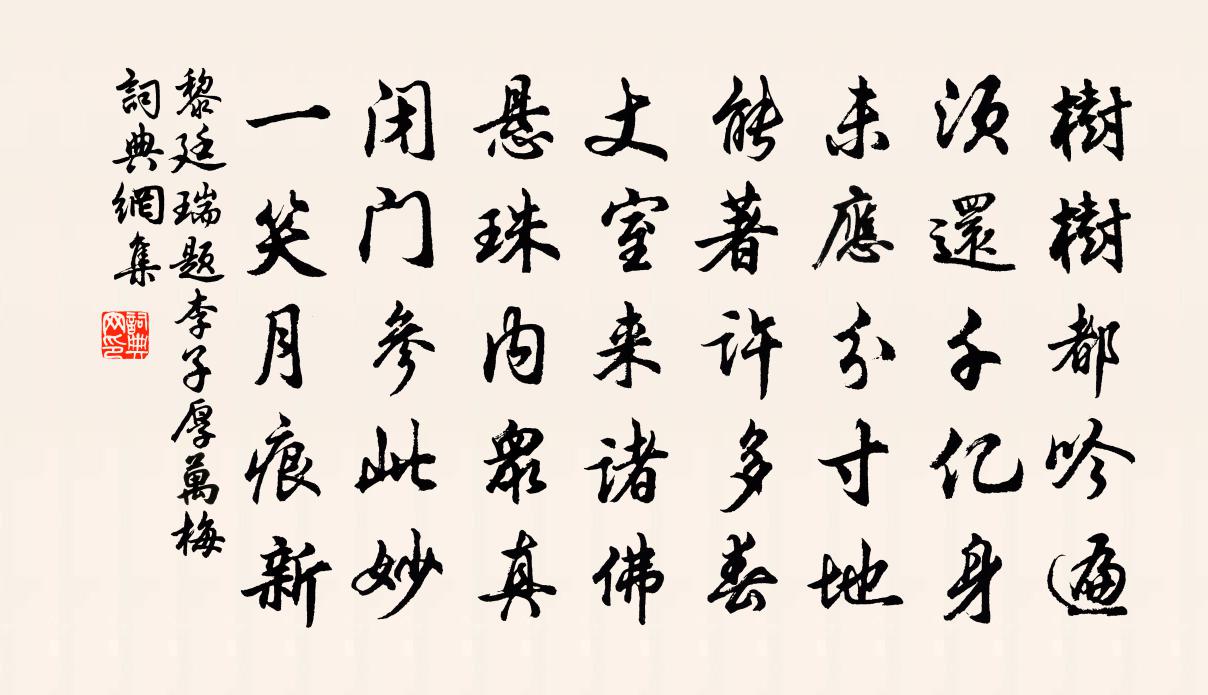 樹樹都吟遍
須還千亿身
未應分寸地
能著許多春
丈室来诸佛
悬珠内眾真
闭门参此妙
一笑月痕新
黎廷瑞题李子厚萬梅
詞典網集
詞典网印